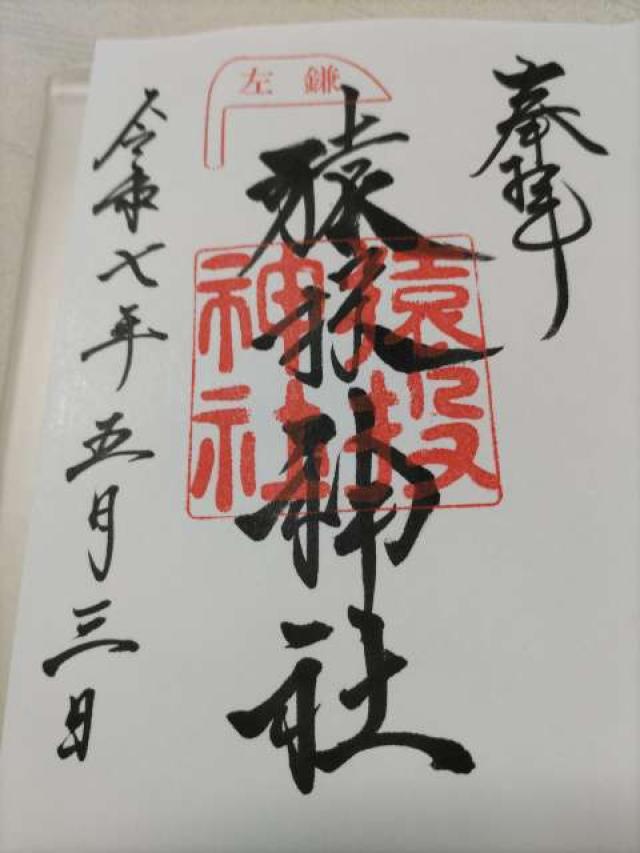 奉拝
左鎌
猿投神社
猿投
神社
令和七年五月三日